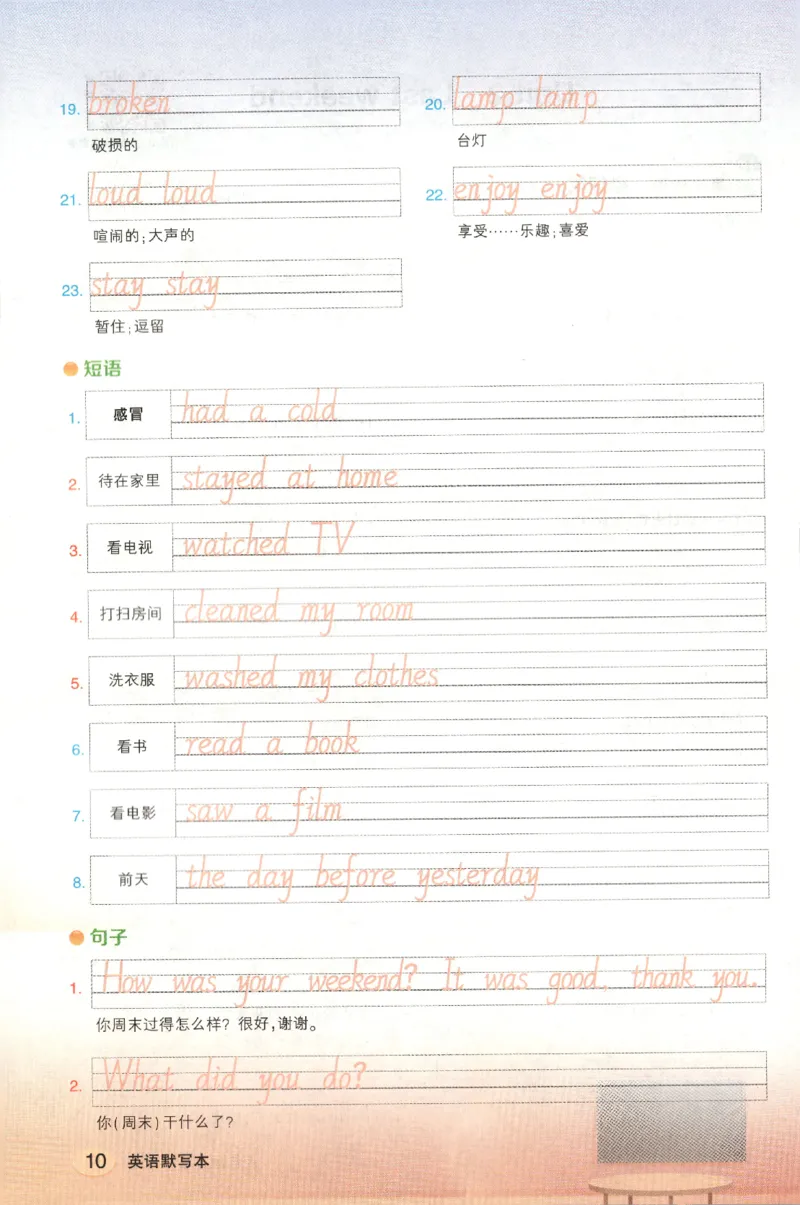 19. broken
20. lamp lamp
破损的
台灯
21. loud loud
22. enjoy enjoy
喧闹的;大声的
享受……乐趣;喜爱
23. stay stay
暂住;逗留
短语
1. 感冒 had a cold
2. 待在家里 stayed at home
3. 看电视 watched TV
4. 打扫房间 cleaned my room
5. 洗衣服 washed my clothes
6. 看书 read a book
7. 看电影 saw a film
8. 前天 the day before yesterday
句子
1. How was your weekend? It was good, thank you.
你周末过得怎么样? 很好,谢谢。
2. What did you do?
你(周末)干什么了?
10 英语默写本